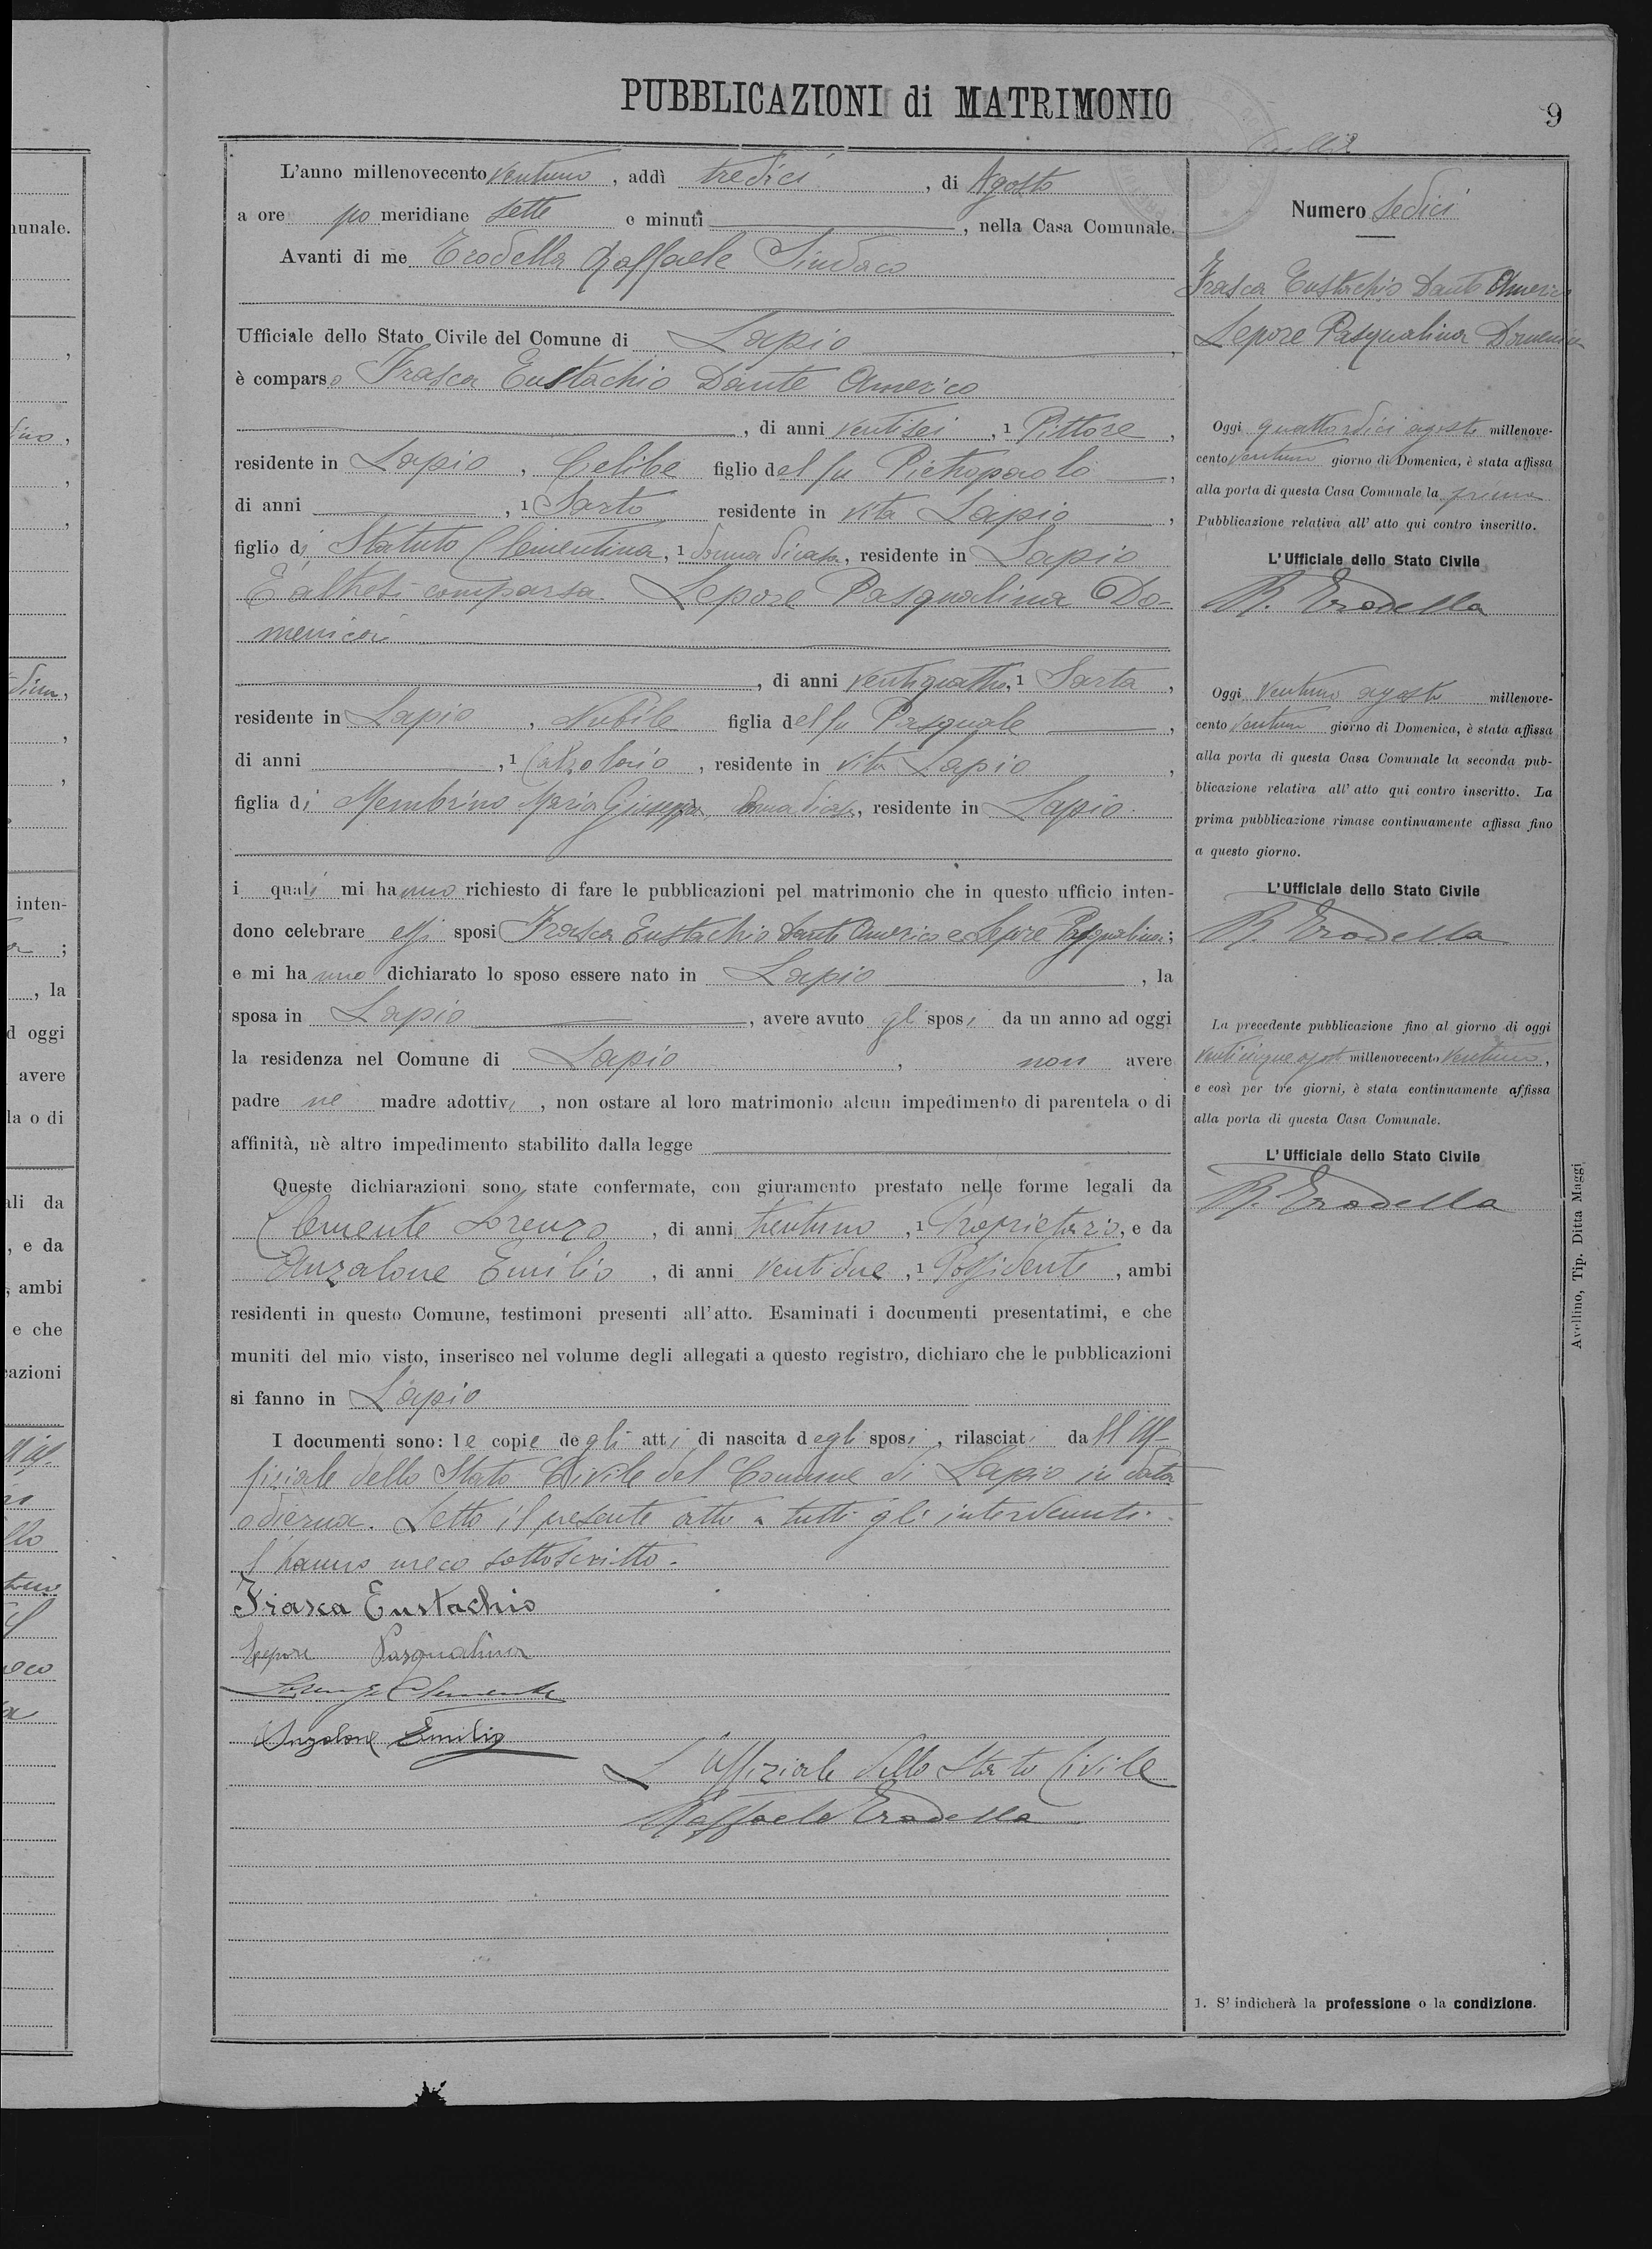 PUBBLICAZIONI di MATRIMONIO
9
L'anno millenovecento ventuno, addì tredici, di Agosto
a ore po meridiane sette e minuti, nella Casa Comunale.
Avanti di me Erodella Raffaele Sindaco
Ufficiale dello Stato Civile del Comune di Lapio
è comparso Frasca Eustachio Dante Americo
, di anni ventisei, 1 Pittore,
residente in Lapio, Celibe figlio del fu Pietropaolo,
di anni, 1 Sarto residente in vita Lapio,
figlio di Statuto Clementina, 1 donna di casa, residente in Lapio
È altresì comparsa Lepore Pasqualina Do-
menica
, di anni ventiquattro, 1 Sarta,
residente in Lapio, Nubile figlia del fu Pasquale,
di anni, 1 Calzolaio, residente in vita Lapio,
figlia di Membrino Maria Giuseppa, donna di casa, residente in Lapio.
i quali mi hanno richiesto di fare le pubblicazioni pel matrimonio che in questo ufficio inten-
dono celebrare essi sposi Frasca Eustachio Dante Americo e Lepore Pasqualina;
e mi hanno dichiarato lo sposo essere nato in Lapio, la
sposa in Lapio, avere avuto gli sposi da un anno ad oggi
la residenza nel Comune di Lapio, non avere
padre nè madre adottivi, non ostare al loro matrimonio alcun impedimento di parentela o di
affinità, nè altro impedimento stabilito dalla legge
Queste dichiarazioni sono state confermate, con giuramento prestato nelle forme legali da
Clemente Lorenzo, di anni trentuno, 1 Proprietario, e da
Anzalone Emilio, di anni ventidue, 1 Possidente, ambi
residenti in questo Comune, testimoni presenti all'atto. Esaminati i documenti presentatimi, e che
muniti del mio visto, inserisco nel volume degli allegati a questo registro, dichiaro che le pubblicazioni
si fanno in Lapio
I documenti sono: le copie degli atti di nascita degli sposi, rilasciati dall'Uf-
fiziale dello Stato Civile del Comune di Lapio in data
odierna. Letto il presente atto a tutti gli intervenuti
l'hanno meco sottoscritto.
Frasca Eustachio
Lepore Pasqualina
Lorenzo Clemente
Anzalone Emilio
L'Uffiziale dello Stato Civile
Raffaele Erodella
Numero sedici
Frasca Eustachio Dante Americo
Lepore Pasqualina Domenica
Oggi quattordici agosto millenove-
cento ventuno giorno di Domenica, è stata affissa
alla porta di questa Casa Comunale la prima
Pubblicazione relativa all'atto qui contro inscritto.
L'Ufficiale dello Stato Civile
R. Erodella
Oggi ventuno agosto millenove-
cento ventuno giorno di Domenica, è stata affissa
alla porta di questa Casa Comunale la seconda pub-
blicazione relativa all'atto qui contro inscritto. La
prima pubblicazione rimase continuamente affissa fino
a questo giorno.
L'Ufficiale dello Stato Civile
R. Erodella
La precedente pubblicazione fino al giorno di oggi
venticinque agosto millenovecento ventuno,
e così per tre giorni, è stata continuamente affissa
alla porta di questa Casa Comunale.
L'Ufficiale dello Stato Civile
R. Erodella
Avellino, Tip. Ditta Maggi
1. S'indicherà la professione o la condizione.
unale.
inten-
, la
d oggi
avere
la o di
ali da
, e da
, ambi
e che
cazioni